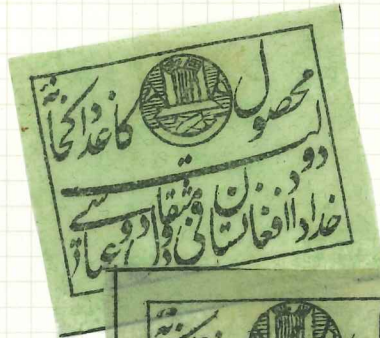 محصول کاغذ داکخانهٔ
دولت
خداداد افغانستان فی دو مثقال دو عباسی